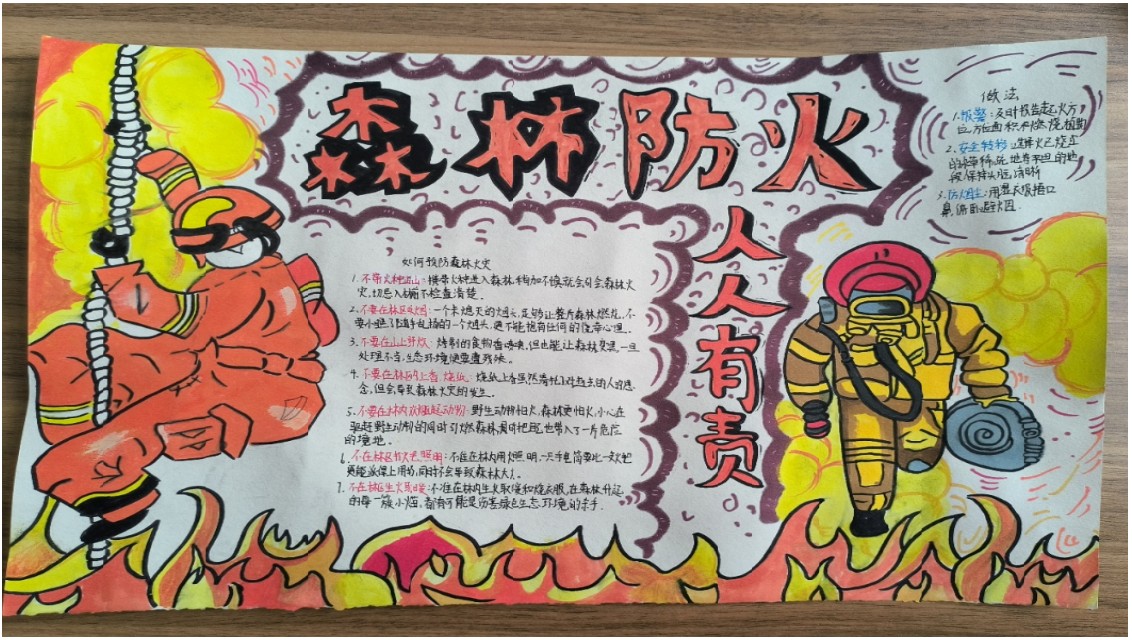 森林防火
人人有责
如何预防森林火灾
1.不带火种进山:携带火种进入森林,稍加不慎就会引会森林火
火,切忌入
2.不要在林区吸烟:一个未熄灭的烟头,足够让整片森林燃烧,不
要小瞧了随手乱扔的一个烟头,更不能抱有任何的侥幸心理.
3.不要在山上野炊:烤制的食物香喷喷,但也能让森林变黑,一旦
处理不当,生态环境便遭遇残决.
4.不要在林区内上香、烧纸:烧纸上香虽然寄托了对逝去的人的思
念,但会导致森林火灾的发生.
5.不要在林内驱赶动物:野生动物怕火,森林更怕火,小心在
驱赶野生动物的同时引燃森林,同时把自己也带入了一片危险
的境地.
6.不在林区用火把照明:不准在林内用火照明,一只手电筒要比一支火把
更能派得上用场,同时不会导致森林火灾.
7.不在林区生火取暖:不准在林内生火取暖和烧衣服,在森林升起
的每一簇小焰,都有可能是伤害绿色生态环境的杀手.
做法
1.报警:及时报告起火方
位、方位面积和燃烧植物
2.安全转移:选择火已经过
的地带
段,保持头脑清晰
3.防烟尘:用湿衣服捂口
鼻,俯卧避火因